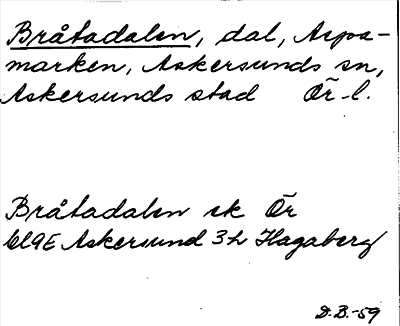 Bråtadalen, dal, Aspa-
marken, Askersunds sn,
Askersunds stad Ör. l.
Bråtadalen sk Ör
Askersund 3 h Hagaberg
D.B.-59